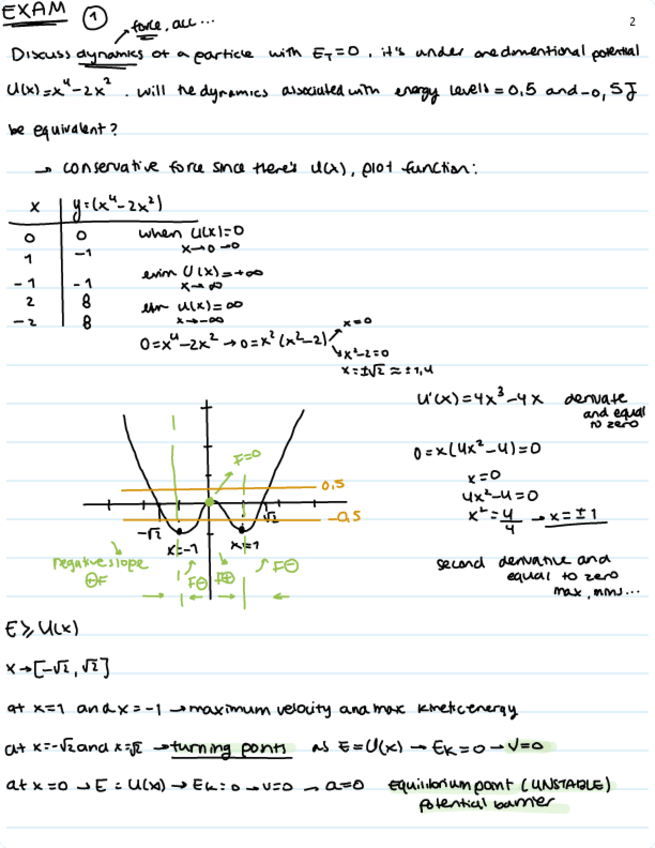 EXAM ① force, acc...
2
Discuss dynamics of a particle with E_T=0, it's under onedimentional potential
U(x)=x⁴-2x². will the dynamics associated with energy levels=0,5 and -0,5J
be equivalent?
→ conservative force since there's U(x), plot function:
x | y=(x⁴-2x²)
0 | 0
1 | -1
-1 | -1
2 | 8
-2 | 8
when U(x)=0
x→0 →0
U(x)=+∞
x→∞
U(x)=∞
x→-∞
0=x⁴-2x² → 0=x²(x²-2)
x=0
x²-2=0
x=±√2≈±1,4
U'(x)=4x³-4x derivate
and equal
to zero
0=x(4x²-4)=0
x=0
4x²-4=0
x²=4/4 → x=±1
second derivative and
equal to zero
max, mins...
F=0
0,5
-0,5
-√2
√2
x=-1
x=1
negative slope
⊕F
F⊖
F⊕
F⊖
E≥U(x)
x→[-√2,√2]
at x=1 and x=-1 → maximum velocity and max kinetic energy
at x=-√2 and x=√2 → turning points as E=U(x) → E_K=0 → V=0
at x=0 → E=U(x) → E_K=0 → v=0 → a=0 Equilibrium point (UNSTABLE)
potential barrier